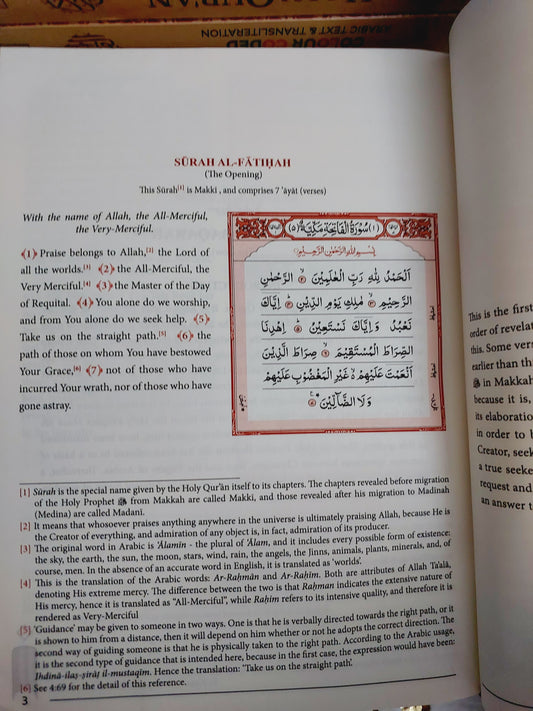 ARABIC TEXT & TRANSLITERATION
COLOUR CODED
SŪRAH AL-FĀTIḤAH
(The Opening)
This Sūrah[1] is Makki , and comprises 7 'āyāt (verses)
With the name of Allah, the All-Merciful,
the Very-Merciful.
﴾1﴿ Praise belongs to Allah,[2] the Lord of
all the worlds.[3] ﴾2﴿ the All-Merciful, the
Very Merciful.[4] ﴾3﴿ the Master of the Day
of Requital. ﴾4﴿ You alone do we worship,
and from You alone do we seek help. ﴾5﴿
Take us on the straight path.[5] ﴾6﴿ the
path of those on whom You have bestowed
Your Grace,[6] ﴾7﴿ not of those who have
incurred Your wrath, nor of those who have
gone astray.
(١) سُوْرَةُ الْفَاتِحَةِ مَكِّيَّةٌ (٥)
بِسْمِ اللهِ الرَّحْمٰنِ الرَّحِيْمِ
اَلْحَمْدُ لِلّٰهِ رَبِّ الْعٰلَمِيْنَ ۙ الرَّحْمٰنِ
الرَّحِيْمِ ۙ مٰلِكِ يَوْمِ الدِّيْنِ ؕ اِيَّاكَ
نَعْبُدُ وَاِيَّاكَ نَسْتَعِيْنُ ؕ اِهْدِنَا
الصِّرَاطَ الْمُسْتَقِيْمَ ۙ صِرَاطَ الَّذِيْنَ
اَنْعَمْتَ عَلَيْهِمْ ۙ غَيْرِ الْمَغْضُوْبِ عَلَيْهِمْ
وَلَا الضَّآلِّيْنَ
[1] Sūrah is the special name given by the Holy Qur'ān itself to its chapters. The chapters revealed before migration
of the Holy Prophet ﷺ from Makkah are called Makki, and those revealed after his migration to Madinah
(Medina) are called Madanī.
[2] It means that whosoever praises anything anywhere in the universe is ultimately praising Allah, because He is
the Creator of everything, and admiration of any object is, in fact, admiration of its producer.
[3] The original word in Arabic is 'Ālamīn - the plural of 'Ālam, and it includes every possible form of existence:
the sky, the earth, the sun, the moon, stars, wind, rain, the angels, the Jinns, animals, plants, minerals, and, of
course, men. In the absence of an accurate word in English, it is translated as 'worlds'.
[4] This is the translation of the Arabic words: Ar-Raḥmān and Ar-Raḥīm. Both are attributes of Allah Ta'alā,
denoting His extreme mercy. The difference between the two is that Raḥman indicates the extensive nature of
His mercy, hence it is translated as "All-Merciful", while Raḥim refers to its intensity quality, and therefore it is
rendered as Very-Merciful
[5] 'Guidance' may be given to someone in two ways. One is that he is verbally directed towards the right path, or it
is shown to him from a distance, then it will depend on him whether or not he adopts the correct direction. The
second way of guiding someone is that he is physically taken to the right path. According to the Arabic usage,
it is the second type of guidance that is intended here, because in the first case, the expression would have been:
Ihdinā-ilaṣ-ṣirāṭ il-mustaqīm. Hence the translation: 'Take us on the straight path'.
[6] See 4:69 for the detail of this reference.
3
This is the firs
order of revelat
this. Some vers
earlier than th
ﷺ in Makkah
because it is,
its elaboration
in order to b
Creator, seek
a true seeke
request and
an answer t